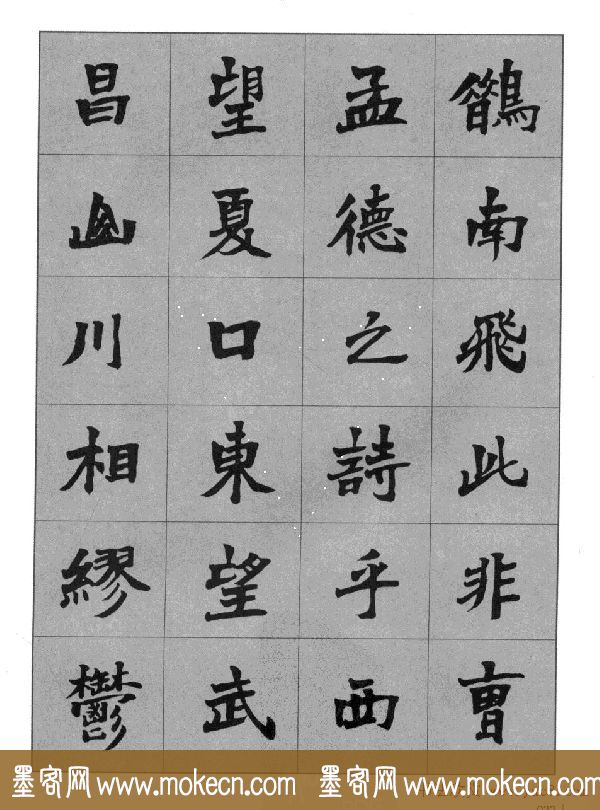 鵲南飛此非曹
孟德之詩乎西
望夏口東望武
昌山川相繆鬱
墨客网www.mokecn.com 墨客网www.mokecn.com